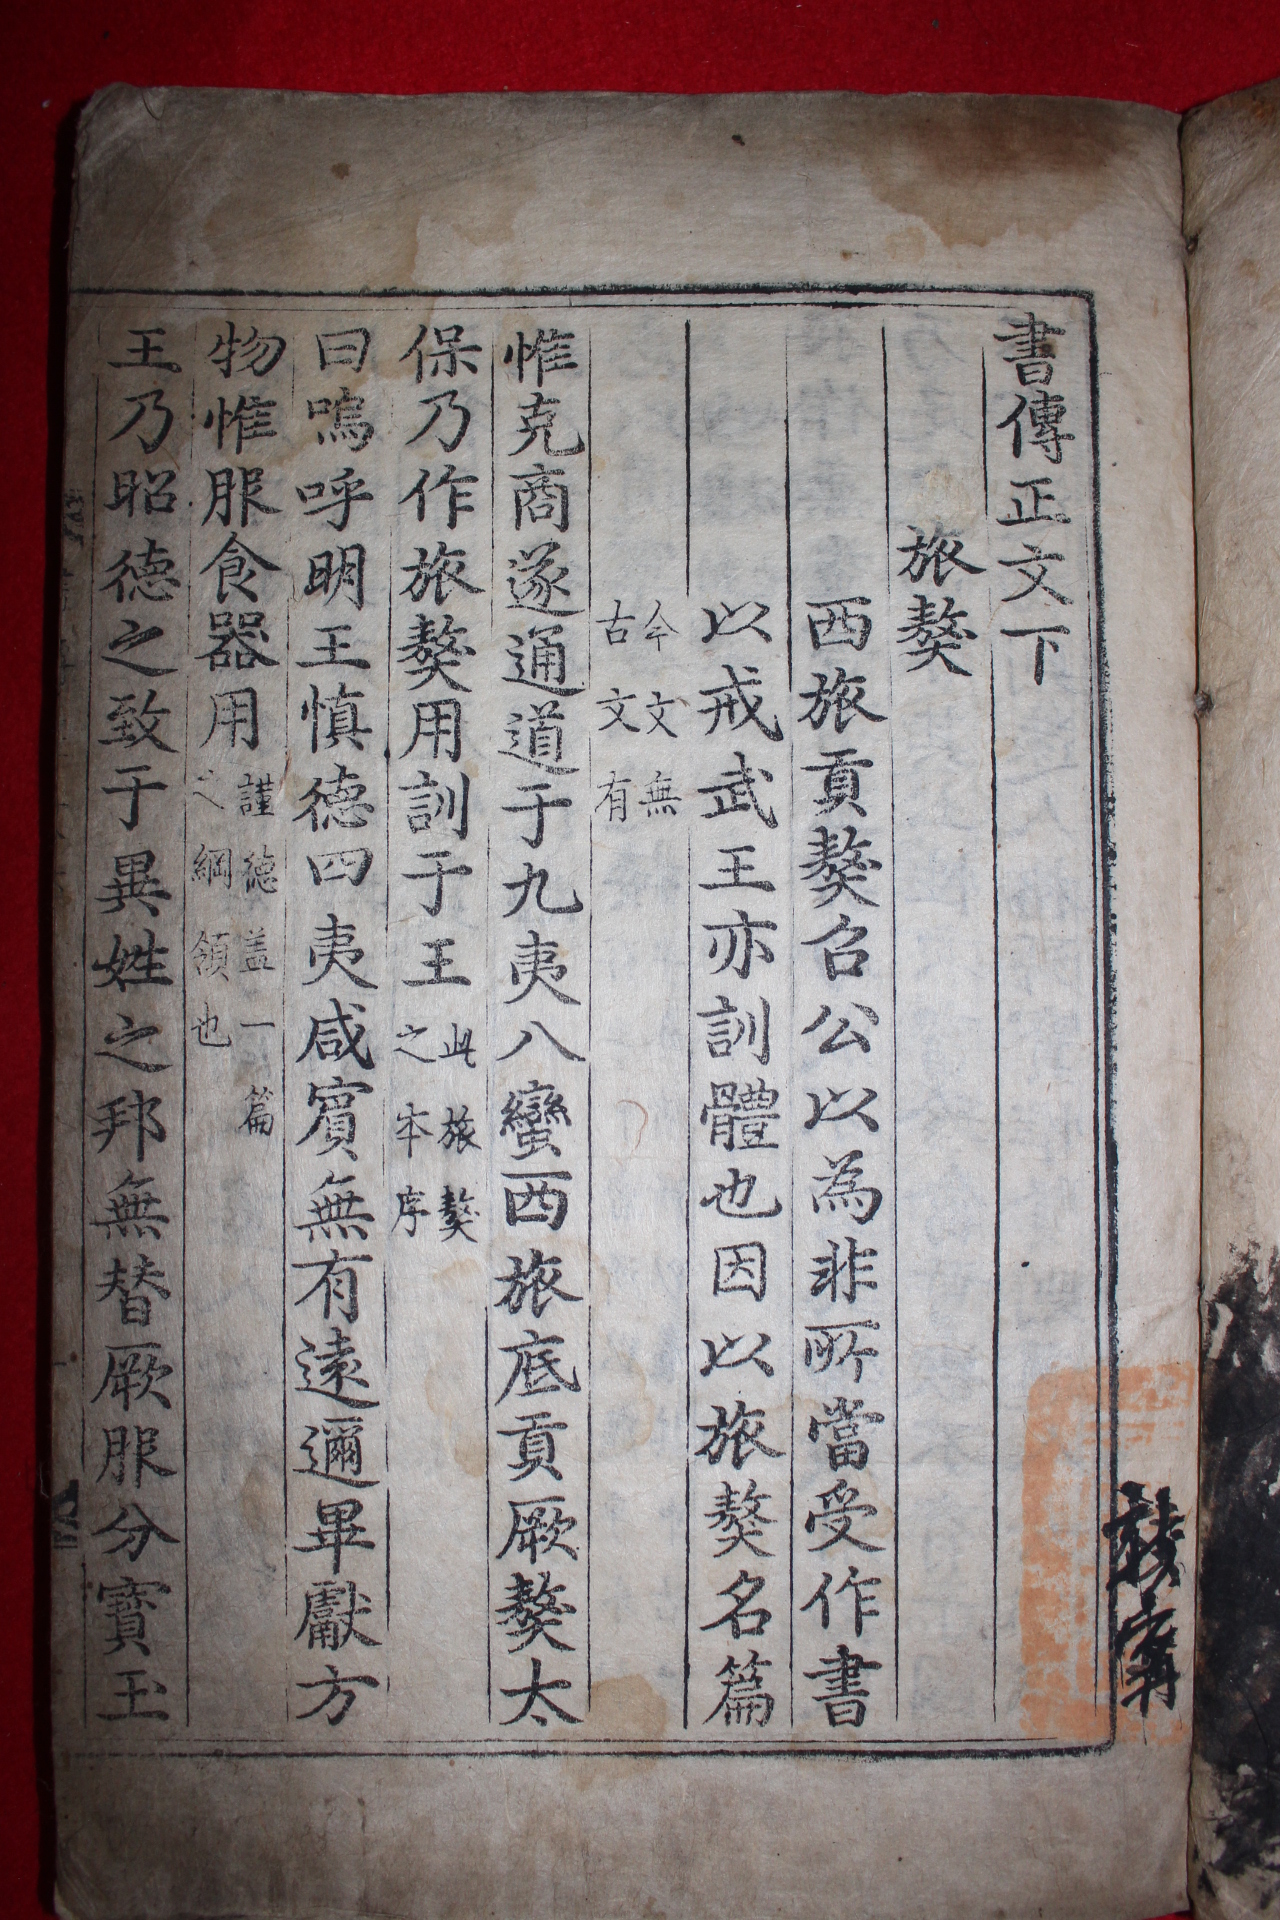 書傳正文下
旅獒
西旅貢獒召公以為非所當受作書
以戒武王亦訓體也因以旅獒名篇
今文無
古文有
惟克商遂通道于九夷八蠻西旅底貢厥獒太
保乃作旅獒用訓于王此旅獒之本序
曰嗚呼明王慎德四夷咸賓無有遠邇畢獻方
物惟服食器用謹德盖一篇之綱領也
王乃昭德之致于異姓之邦無替厥服分寶玉